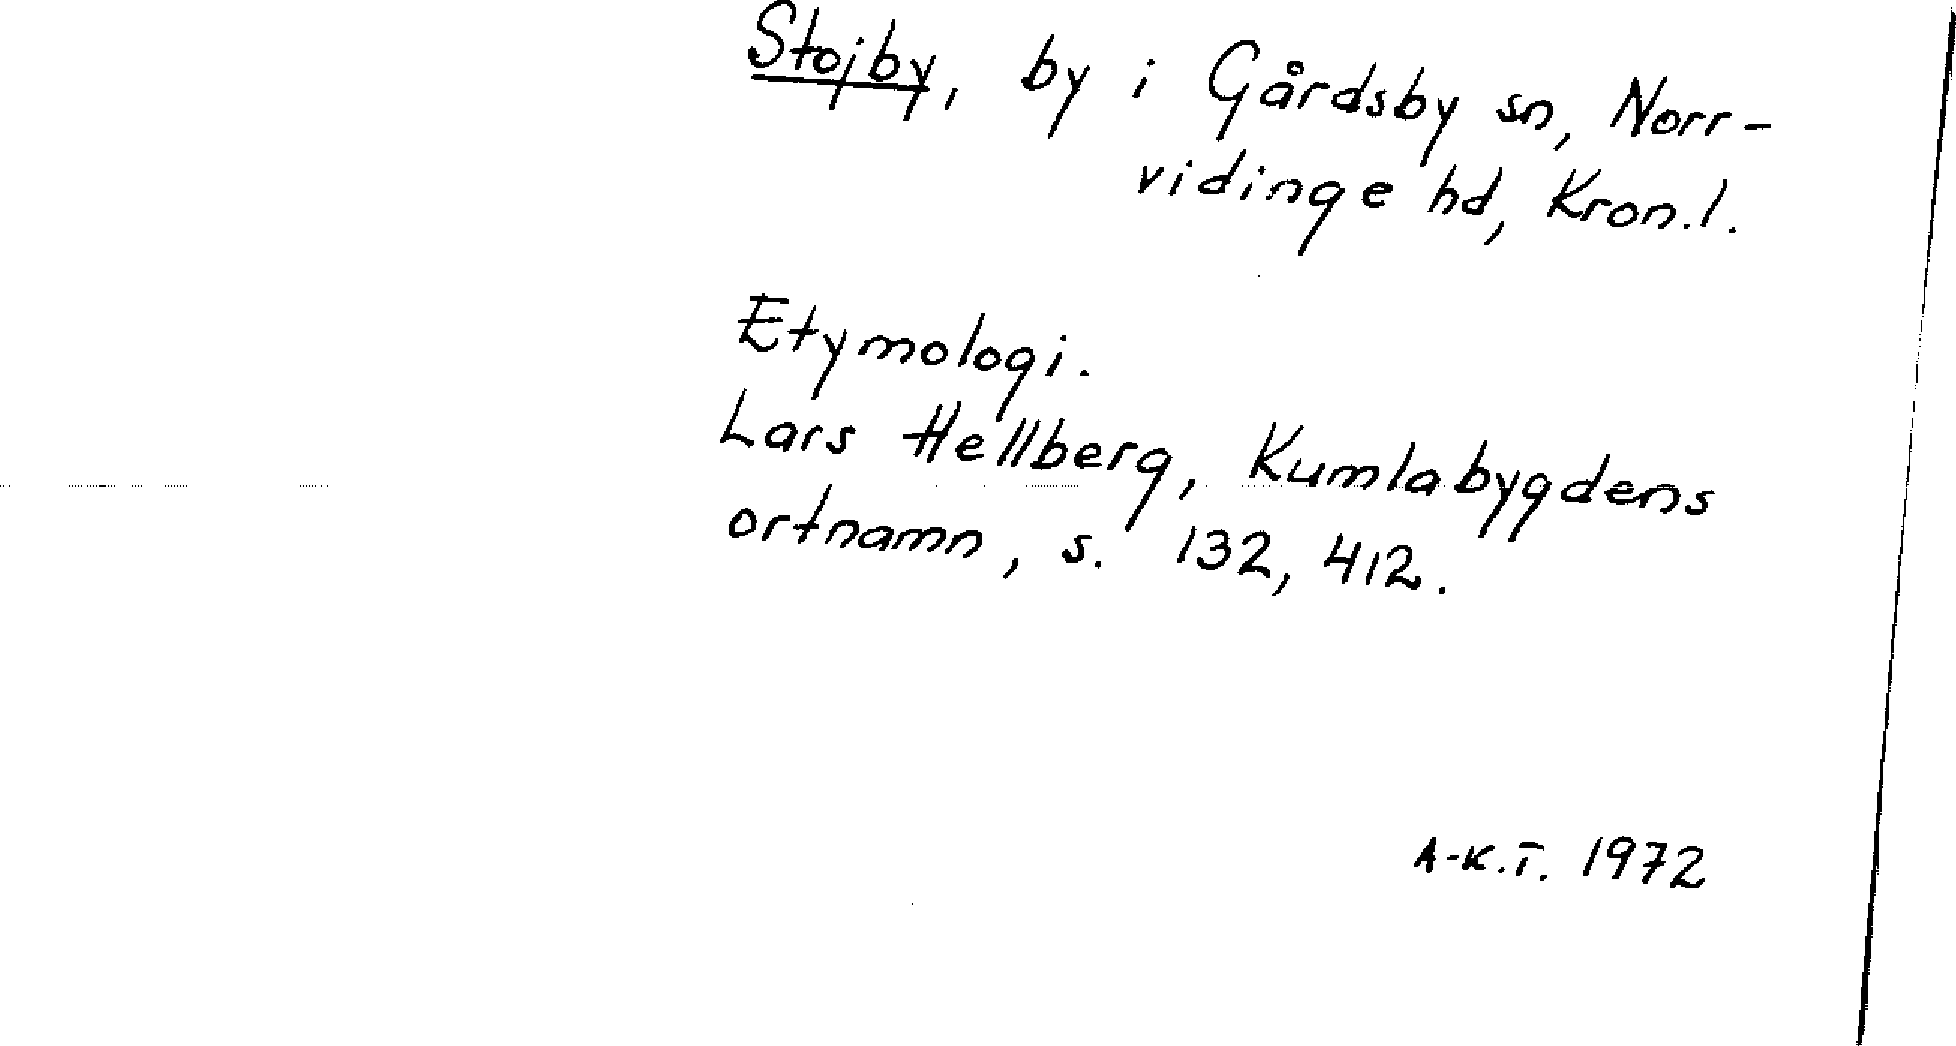 Stojby, by i Gårdsby sn, Norr-
vidinge hd, Kron.l.
Etymologi.
Lars Hellberg, Kumlabygdens
ortnamn, s. 132, 412.
A-K.T. 1972